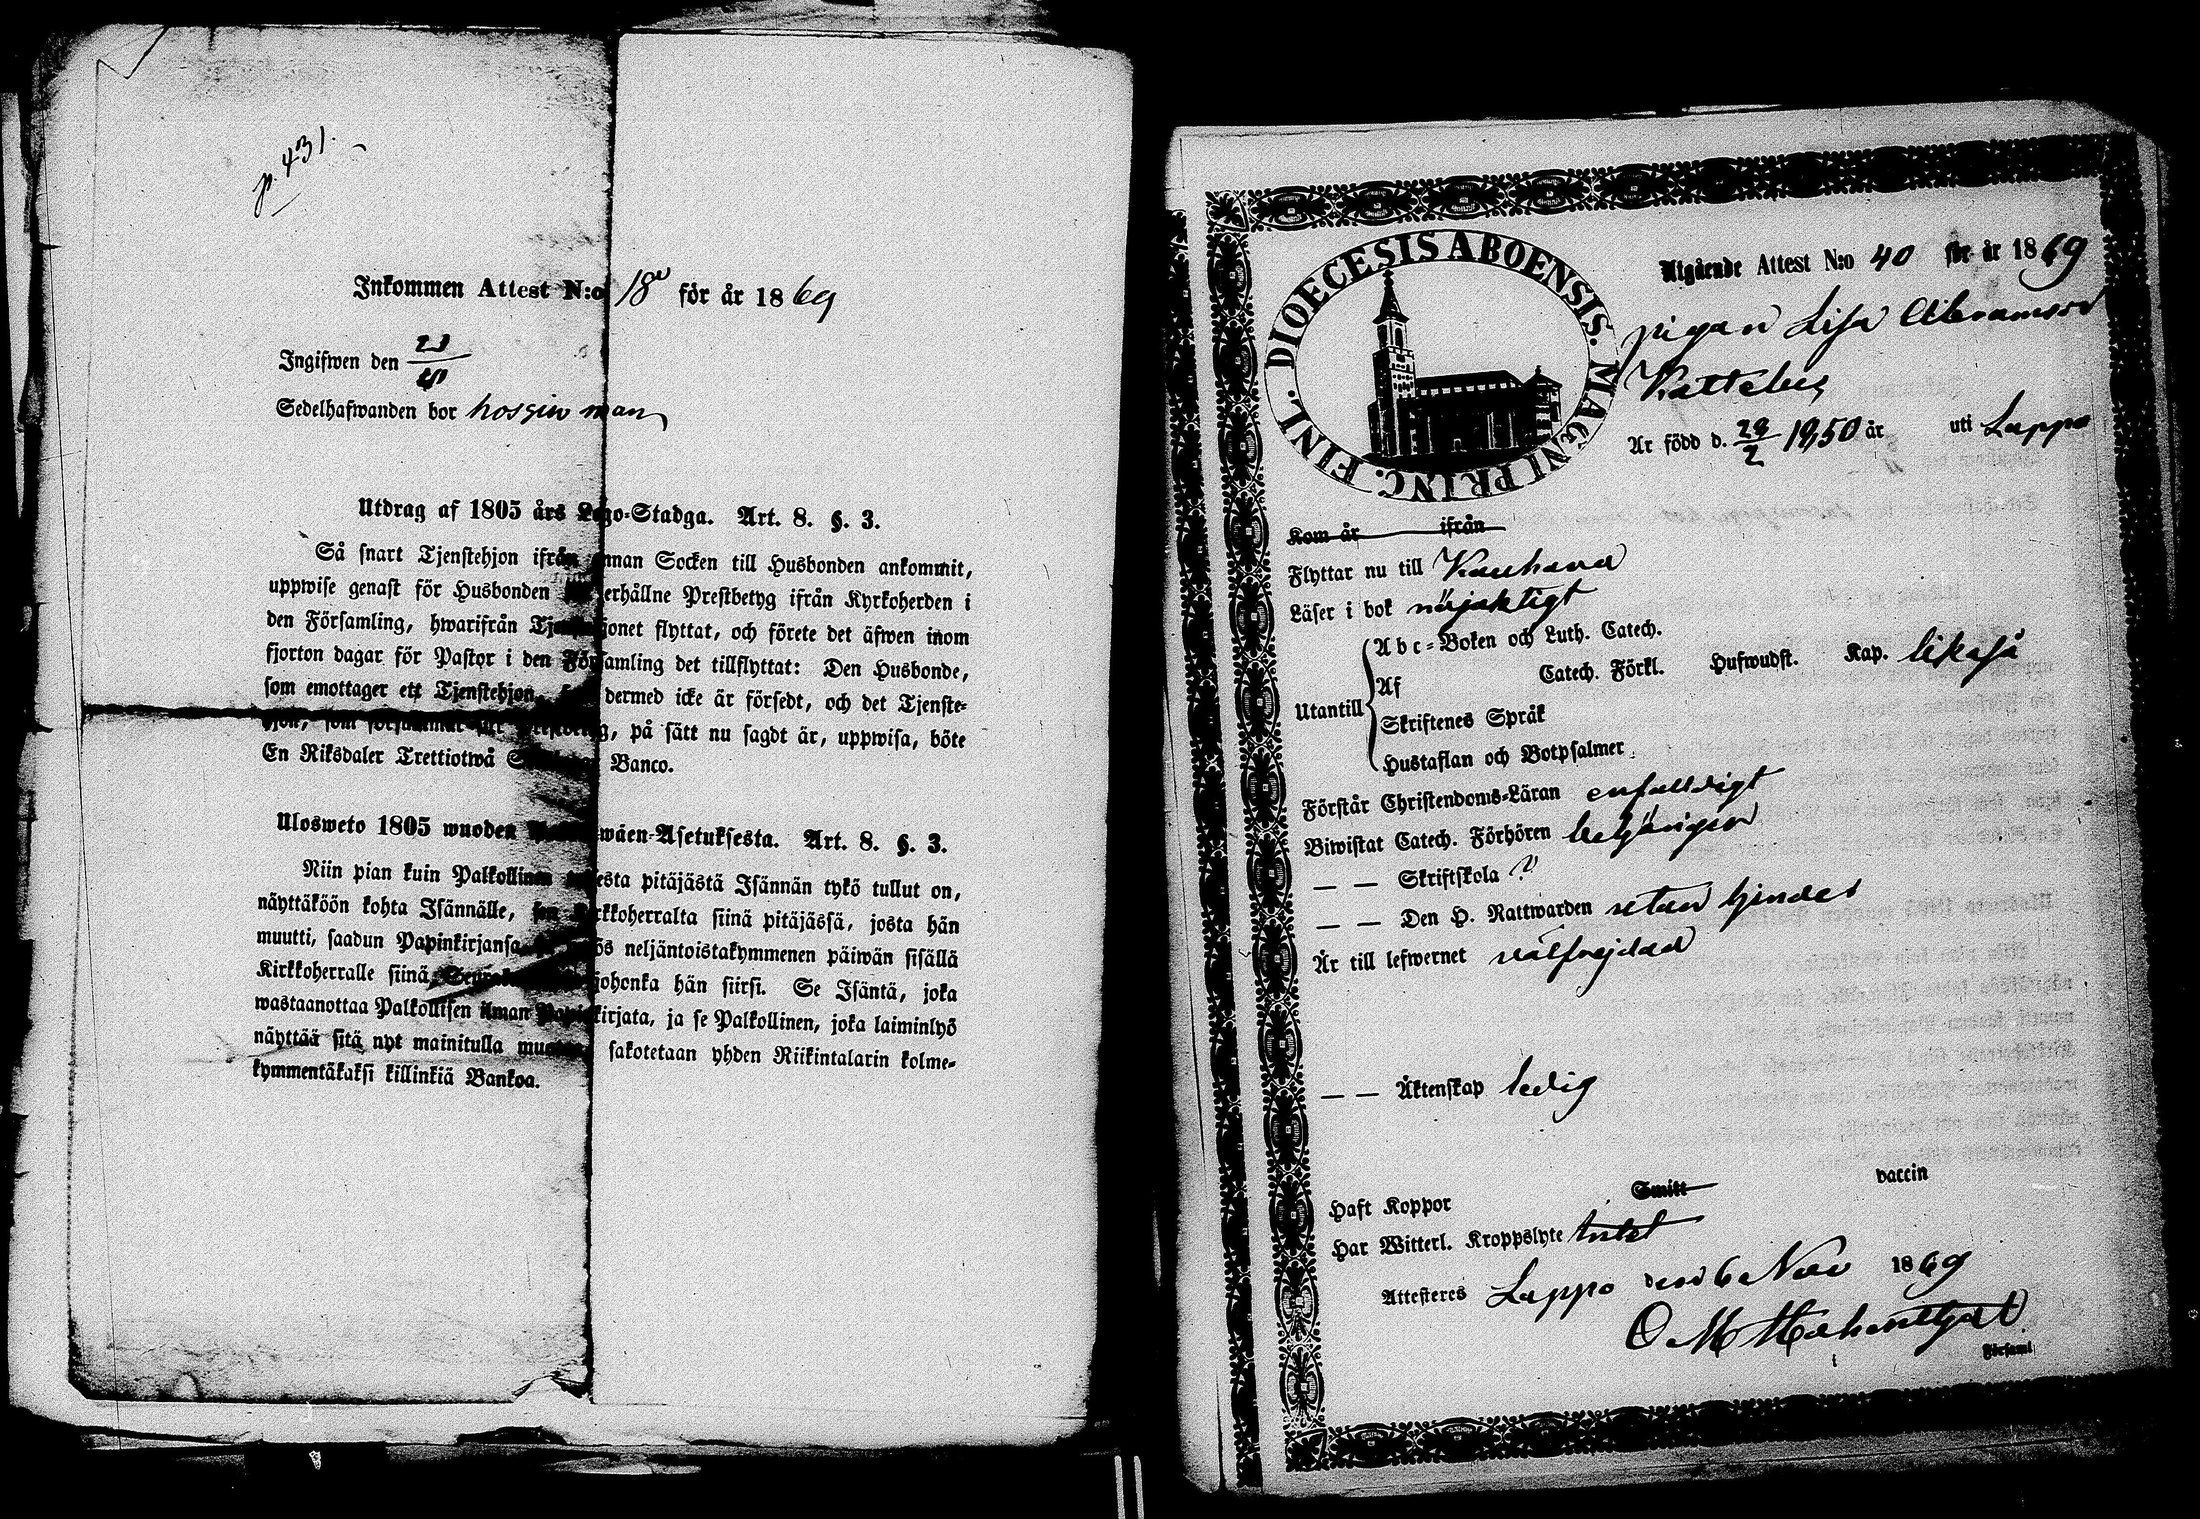 p. 431.
Inkommen Attest N:o 18 för år 1869
Ingifwen den 23
Sedelhafwanden bor hos sin man
Utdrag af 1805 års Lego-Stadga. Art. 8. §. 3.
Så snart Tjenstehjon ifrån annan Socken till Husbonden ankommit,
uppwise genast för Husbonden erhållne Prestbetyg ifrån Kyrkoherden i
den Församling, hwarifrån Tjenstehjonet flyttat, och förete det äfwen inom
fjorton dagar för Pastor i den Församling det tillflyttat: Den Husbonde,
som emottager ett Tjenstehjon, dermed icke är försedt, och det Tjenste-
hjon, som försummar sitt Prestbetyg, på sätt nu sagdt är, uppwisa, böte
En Riksdaler Trettiotwå Banco.
Ulosweto 1805 wuoden wäen-Asetuksesta. Art. 8. §. 3.
Niin pian kuin Palkollinen toisesta pitäjästä Isännän tykö tullut on,
näyttäköön kohta Isännälle, sen Kirkkoherralta siinä pitäjässä, josta hän
muutti, saadun Papinkirjansa, myös neljäntoistakymmenen päiwän sisällä
Kirkkoherralle siinä Seurakunnassa johonka hän siirsi. Se Isäntä, joka
wastaanottaa Palkollisen ilman Papinkirjata, ja se Palkollinen, joka laiminlyö
näyttää sitä nyt mainitulla muotoa, sakotetaan yhden Riikintalarin kolme-
kymmentäkaksi killinkiä Bankoa.
DIOECESIS ABOENSIS. MAGNI PRINC. FINL.
Utgående Attest N:o 40 för år 1869
pigan Lisa Abramsd
Kattelus
Är född d. 28/2 1850 år uti Lappo
Kom år ifrån
Flyttar nu till Kauhava
Läser i bok nöjaktigt
Utantill
Abc-Boken och Luth. Catech.
Af Catech. Förkl. Hufwudst. Kap. likaså
Skriftenes Språk
Hustaflan och Botpsalmer
Förstår Christendoms-Läran enfaldigt
Biwistat Catech. Förhören behörigen
— — Skriftskola
— — Den H. Nattwarden utan hinder
Är till lefwernet välfrejdad
— — Äktenskap ledig
Haft Koppor Smitt vaccin
Har Witterl. Kroppslyte Intet
Attesteres Lappo den 6 Nov 1869
Församl